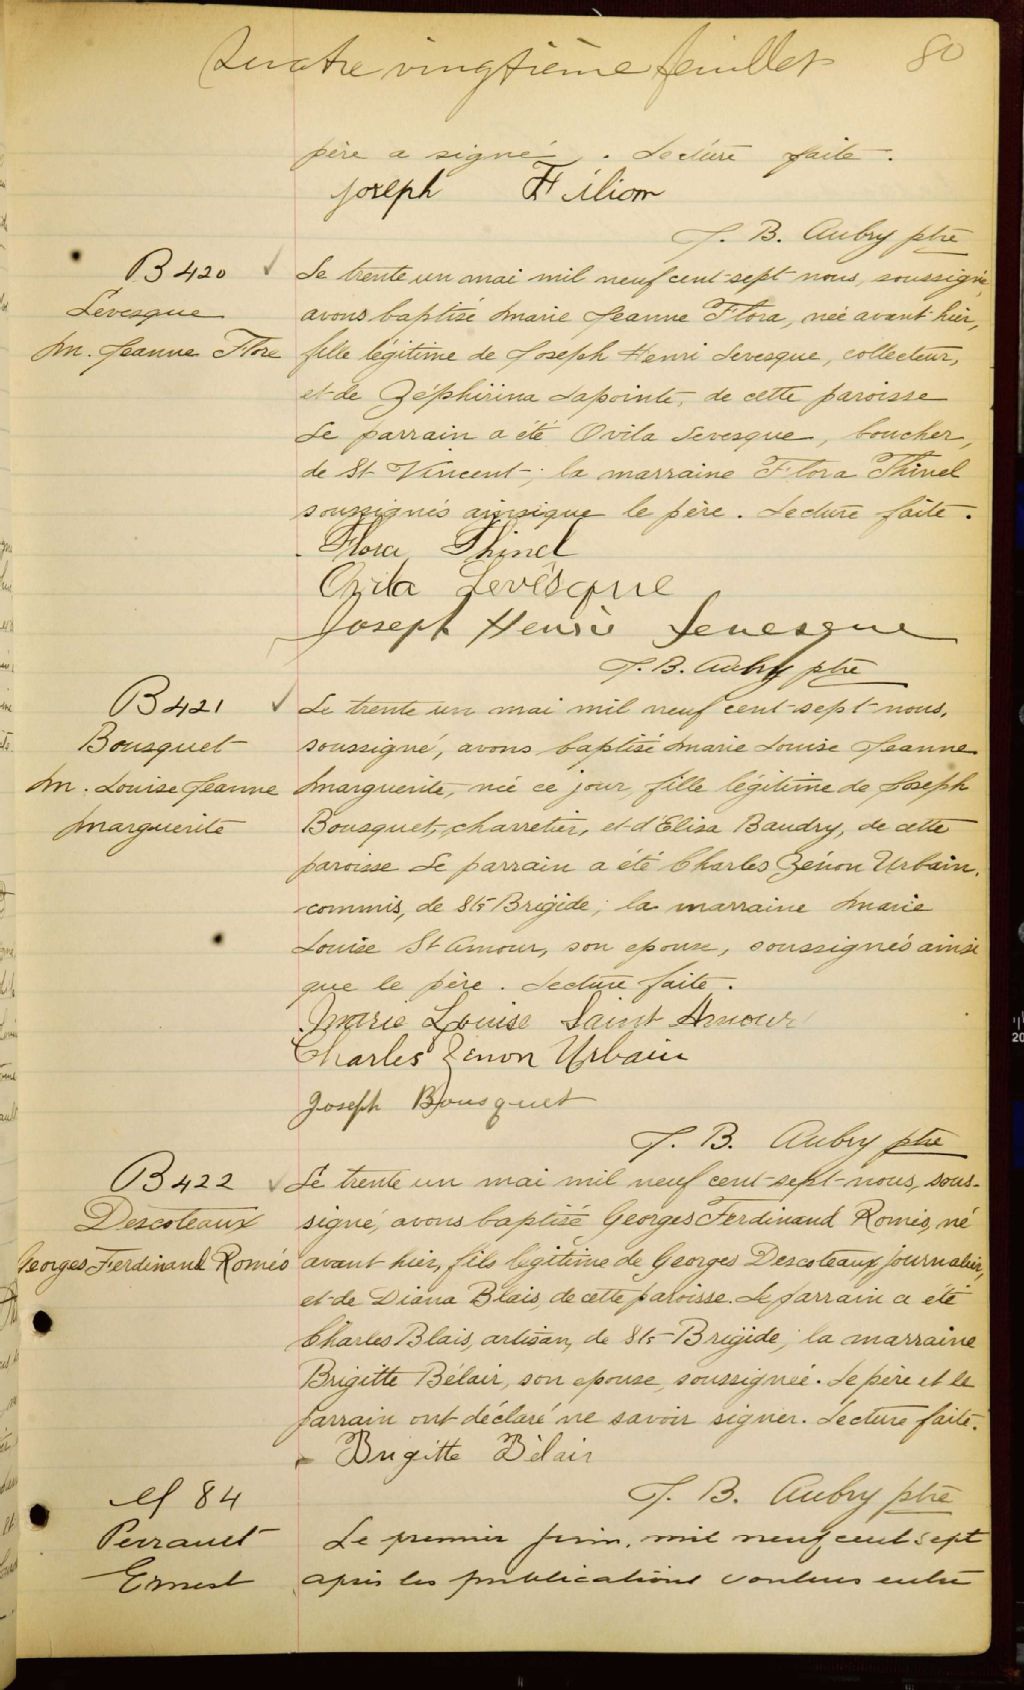 Quatre vingtième feuillet 80
père a signé. Lecture faite.
Joseph Filion
J. B. Aubry ptre
B 420
Lévesque
M. Jeanne Flore
Le trente un mai mil neuf cent-sept nous, soussigné,
avons baptisé Marie Jeanne Flora, née avant hier,
fille légitime de Joseph Henri Levesque, collecteur,
et de Zéphirina Lapointe, de cette paroisse
Le parrain a été Ovila Levesque, boucher,
de St Vincent; la marraine Flora Thinel
soussignés ainsique le père. Lecture faite.
Flora Thinel
Ovila Levêsque
Joseph Henri Levesque
J. B. Aubry ptre
B 421
Bousquet
M. Louise Jeanne
Marguerite
Le trente un mai mil neuf cent-sept nous,
soussigné, avons baptisé Marie Louise Jeanne
Marguerite, née ce jour, fille légitime de Joseph
Bousquet, charretier, et d'Elisa Baudry, de cette
paroisse Le parrain a été Charles Zénon Urbain,
commis, de Ste Brigide; la marraine Marie
Louise St Amour, son epouse, soussignés ainsi
que le père. Lecture faite.
Marie Louise Saint Amour
Charles Zenon Urbain
Joseph Bousquet
J. B. Aubry ptre
B 422
Descoteaux
Georges Ferdinand Roméo
Le trente un mai mil neuf cent-sept-nous, sous-
signé, avons baptisé Georges Ferdinand Roméo, né
avant hier, fils légitime de Georges Descoteaux, journalier,
et de Diana Blais, de cette paroisse. Le parrain a été
Charles Blais, artisan, de Ste Brigide; la marraine
Brigitte Bélair, son epouse, soussignée. Le père et le
parrain ont déclaré ne savoir signer. Lecture faite.
Brigitte Bélair
J. B. Aubry ptre
M 84
Perrault
Ernest
Le premier juin, mil neuf cent sept
après les publications voulues entre